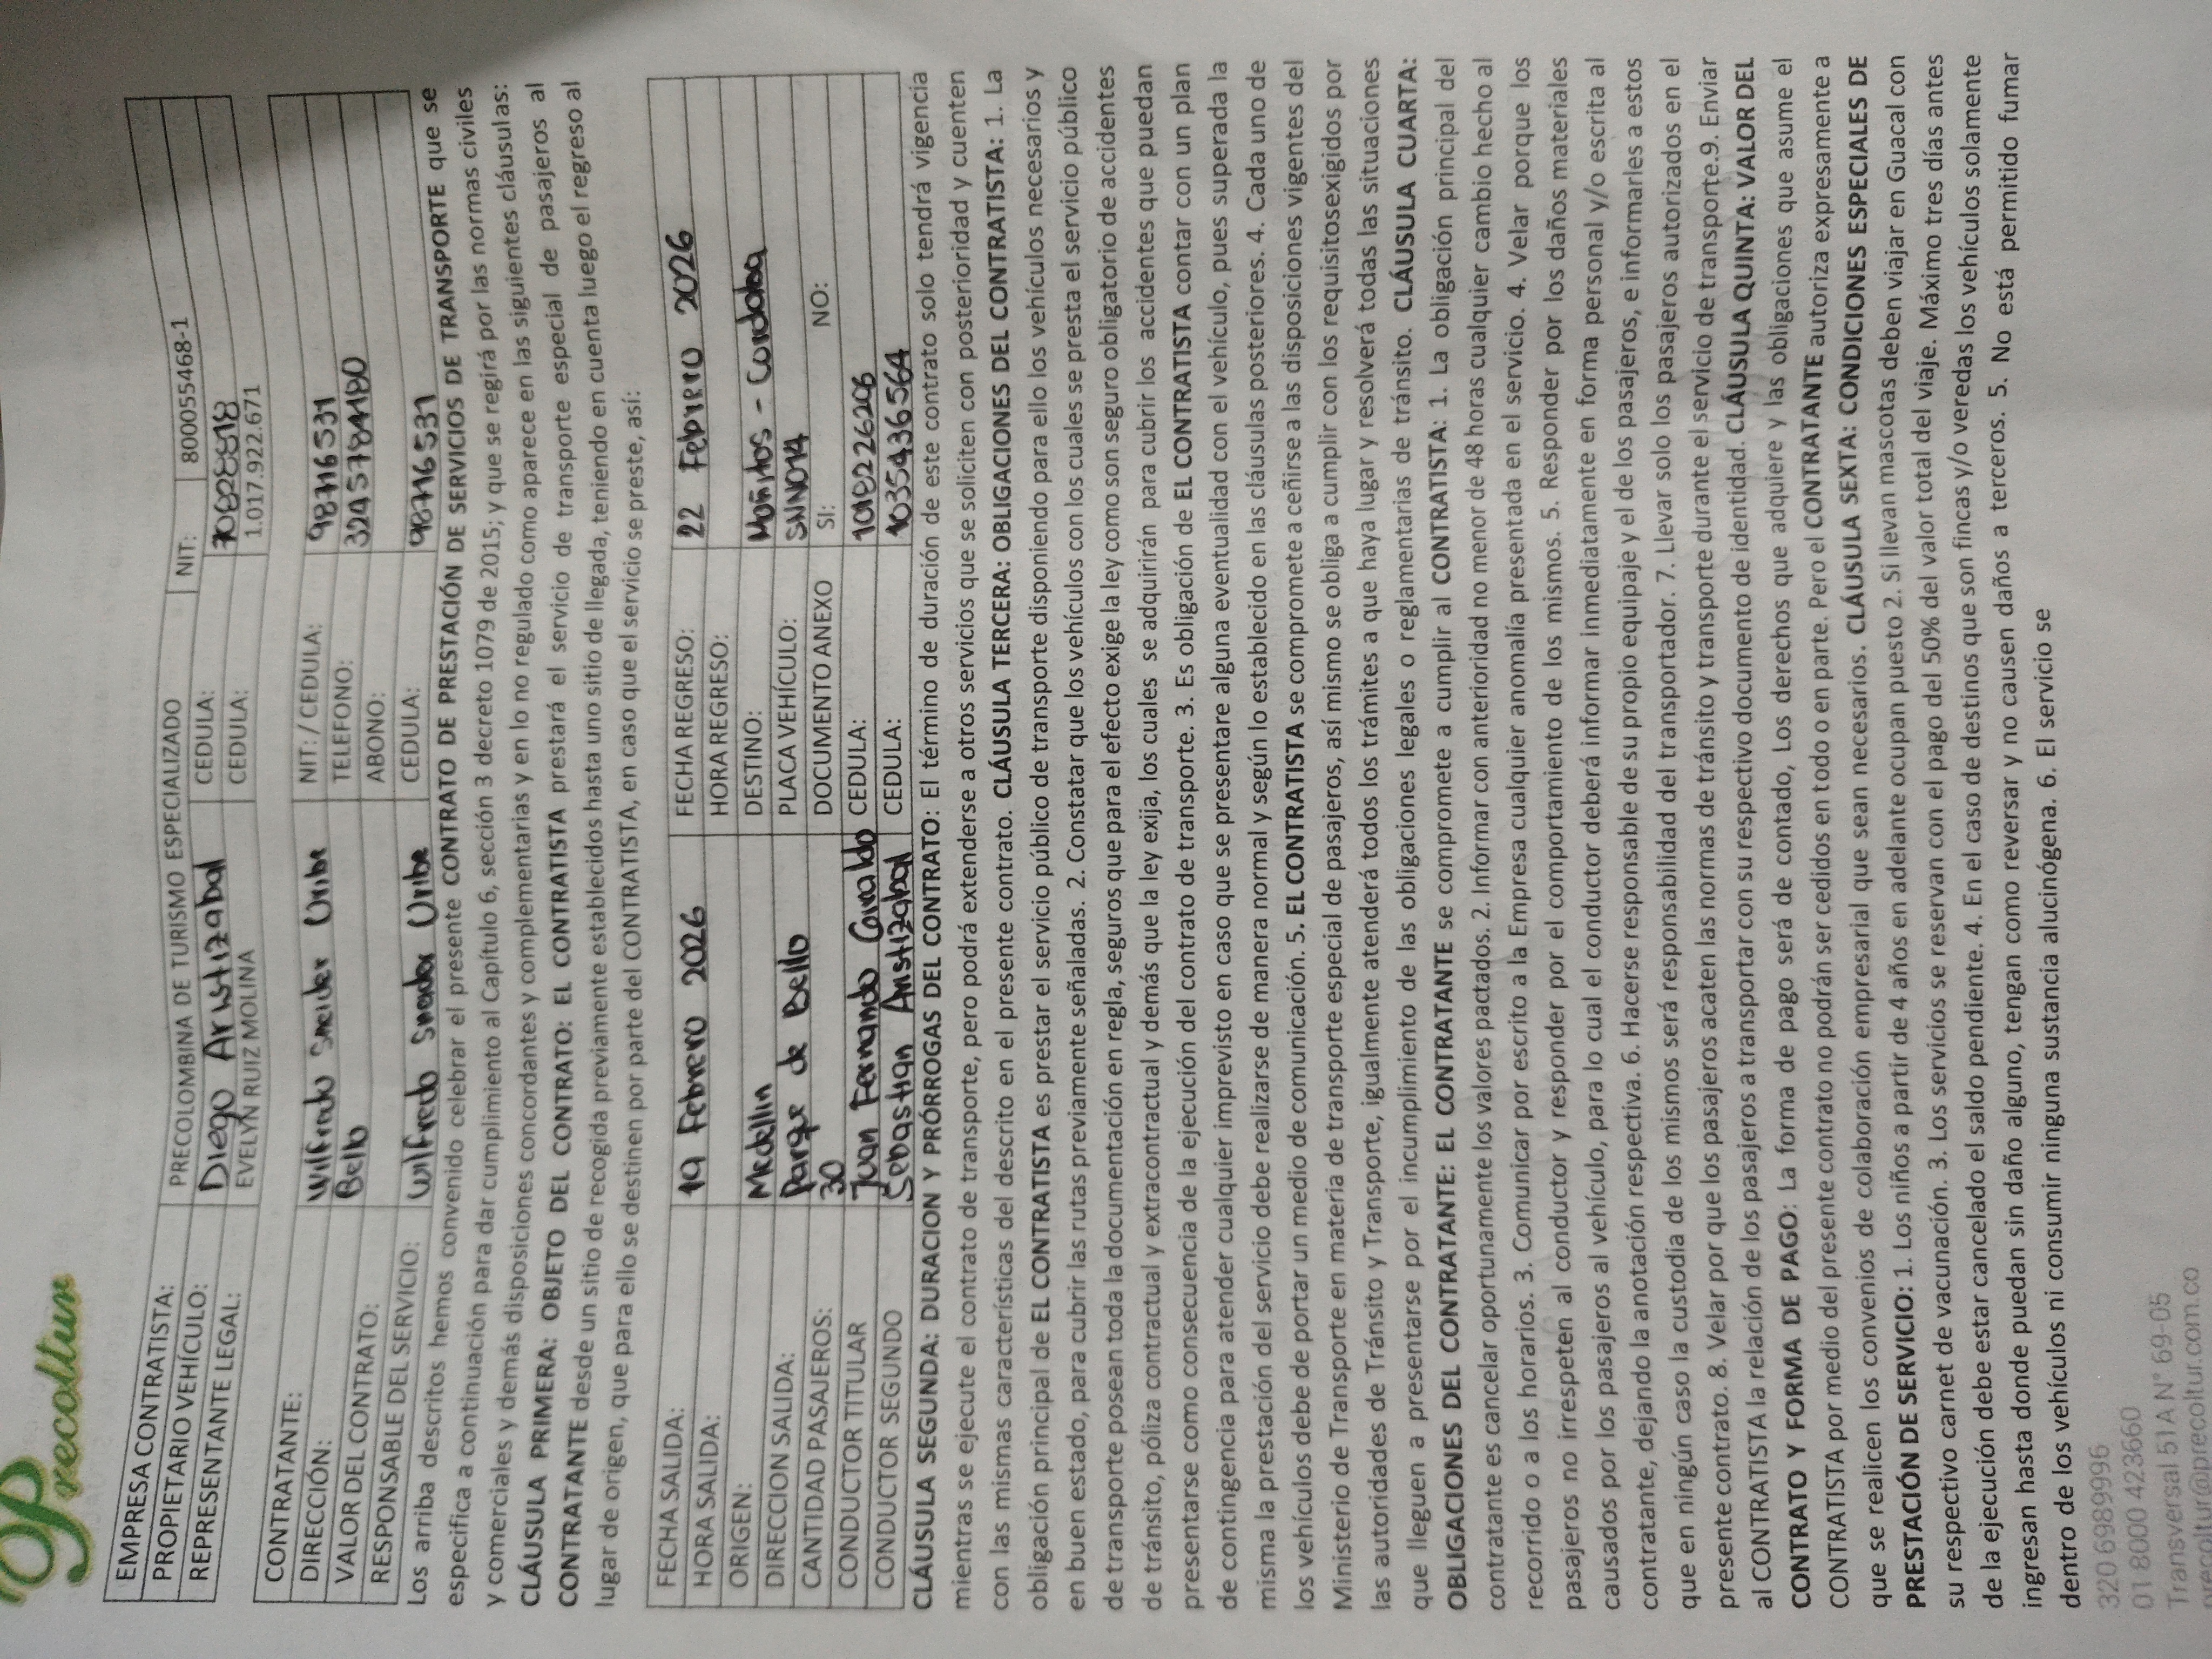 Precoltur
EMPRESA CONTRATISTA: PRECOLOMBINA DE TURISMO ESPECIALIZADO NIT: 800055468-1
PROPIETARIO VEHÍCULO: Diego Aristizabal CEDULA: 70828818
REPRESENTANTE LEGAL: EVELYN RUIZ MOLINA CEDULA: 1.017.922.671
CONTRATANTE: Wilfredo Sneider Uribe NIT: / CEDULA: 98716531
DIRECCIÓN: Bello TELEFONO: 3245784180
VALOR DEL CONTRATO: ABONO:
RESPONSABLE DEL SERVICIO: Wilfredo Sneider Uribe CEDULA: 98716531
Los arriba descritos hemos convenido celebrar el presente CONTRATO DE PRESTACIÓN DE SERVICIOS DE TRANSPORTE que se
especifica a continuación para dar cumplimiento al Capítulo 6, sección 3 decreto 1079 de 2015; y que se regirá por las normas civiles
y comerciales y demás disposiciones concordantes y complementarias y en lo no regulado como aparece en las siguientes cláusulas:
CLÁUSULA PRIMERA: OBJETO DEL CONTRATO: EL CONTRATISTA prestará el servicio de transporte especial de pasajeros al
CONTRATANTE desde un sitio de recogida previamente establecidos hasta uno sitio de llegada, teniendo en cuenta luego el regreso al
lugar de origen, que para ello se destinen por parte del CONTRATISTA, en caso que el servicio se preste, así:
FECHA SALIDA: 19 Febrero 2026 FECHA REGRESO: 22 Febrero 2026
HORA SALIDA: HORA REGRESO:
ORIGEN: Medellin DESTINO: Moñitos - Cordoba
DIRECCION SALIDA: Parque de Bello PLACA VEHÍCULO: SNN014
CANTIDAD PASAJEROS: 30 DOCUMENTO ANEXO SI: NO:
CONDUCTOR TITULAR Juan Fernando Giraldo CEDULA: 1018226206
CONDUCTOR SEGUNDO Sebastian Aristizabal CEDULA: 1035436564
CLÁUSULA SEGUNDA: DURACION Y PRÓRROGAS DEL CONTRATO: El término de duración de este contrato solo tendrá vigencia
mientras se ejecute el contrato de transporte, pero podrá extenderse a otros servicios que se soliciten con posterioridad y cuenten
con las mismas características del descrito en el presente contrato. CLÁUSULA TERCERA: OBLIGACIONES DEL CONTRATISTA: 1. La
obligación principal de EL CONTRATISTA es prestar el servicio público de transporte disponiendo para ello los vehículos necesarios y
en buen estado, para cubrir las rutas previamente señaladas. 2. Constatar que los vehículos con los cuales se presta el servicio público
de transporte posean toda la documentación en regla, seguros que para el efecto exige la ley como son seguro obligatorio de accidentes
de tránsito, póliza contractual y extracontractual y demás que la ley exija, los cuales se adquirirán para cubrir los accidentes que puedan
presentarse como consecuencia de la ejecución del contrato de transporte. 3. Es obligación de EL CONTRATISTA contar con un plan
de contingencia para atender cualquier imprevisto en caso que se presentare alguna eventualidad con el vehículo, pues superada la
misma la prestación del servicio debe realizarse de manera normal y según lo establecido en las cláusulas posteriores. 4. Cada uno de
los vehículos debe de portar un medio de comunicación. 5. EL CONTRATISTA se compromete a ceñirse a las disposiciones vigentes del
Ministerio de Transporte en materia de transporte especial de pasajeros, así mismo se obliga a cumplir con los requisitosexigidos por
las autoridades de Tránsito y Transporte, igualmente atenderá todos los trámites a que haya lugar y resolverá todas las situaciones
que lleguen a presentarse por el incumplimiento de las obligaciones legales o reglamentarias de tránsito. CLÁUSULA CUARTA:
OBLIGACIONES DEL CONTRATANTE: EL CONTRATANTE se compromete a cumplir al CONTRATISTA: 1. La obligación principal del
contratante es cancelar oportunamente los valores pactados. 2. Informar con anterioridad no menor de 48 horas cualquier cambio hecho al
recorrido o a los horarios. 3. Comunicar por escrito a la Empresa cualquier anomalía presentada en el servicio. 4. Velar porque los
pasajeros no irrespeten al conductor y responder por el comportamiento de los mismos. 5. Responder por los daños materiales
causados por los pasajeros al vehículo, para lo cual el conductor deberá informar inmediatamente en forma personal y/o escrita al
contratante, dejando la anotación respectiva. 6. Hacerse responsable de su propio equipaje y el de los pasajeros, e informarles a estos
que en ningún caso la custodia de los mismos será responsabilidad del transportador. 7. Llevar solo los pasajeros autorizados en el
presente contrato. 8. Velar por que los pasajeros acaten las normas de tránsito y transporte durante el servicio de transporte.9. Enviar
al CONTRATISTA la relación de los pasajeros a transportar con su respectivo documento de identidad. CLÁUSULA QUINTA: VALOR DEL
CONTRATO Y FORMA DE PAGO: La forma de pago será de contado, Los derechos que adquiere y las obligaciones que asume el
CONTRATISTA por medio del presente contrato no podrán ser cedidos en todo o en parte. Pero el CONTRATANTE autoriza expresamente a
que se realicen los convenios de colaboración empresarial que sean necesarios. CLÁUSULA SEXTA: CONDICIONES ESPECIALES DE
PRESTACIÓN DE SERVICIO: 1. Los niños a partir de 4 años en adelante ocupan puesto 2. Si llevan mascotas deben viajar en Guacal con
su respectivo carnet de vacunación. 3. Los servicios se reservan con el pago del 50% del valor total del viaje. Máximo tres días antes
de la ejecución debe estar cancelado el saldo pendiente. 4. En el caso de destinos que son fincas y/o veredas los vehículos solamente
ingresan hasta donde puedan sin daño alguno, tengan como reversar y no causen daños a terceros. 5. No está permitido fumar
dentro de los vehículos ni consumir ninguna sustancia alucinógena. 6. El servicio se
320 6989996
01 8000 423660
Transversal 51A N° 69-05
precoltur@precoltur.com.co